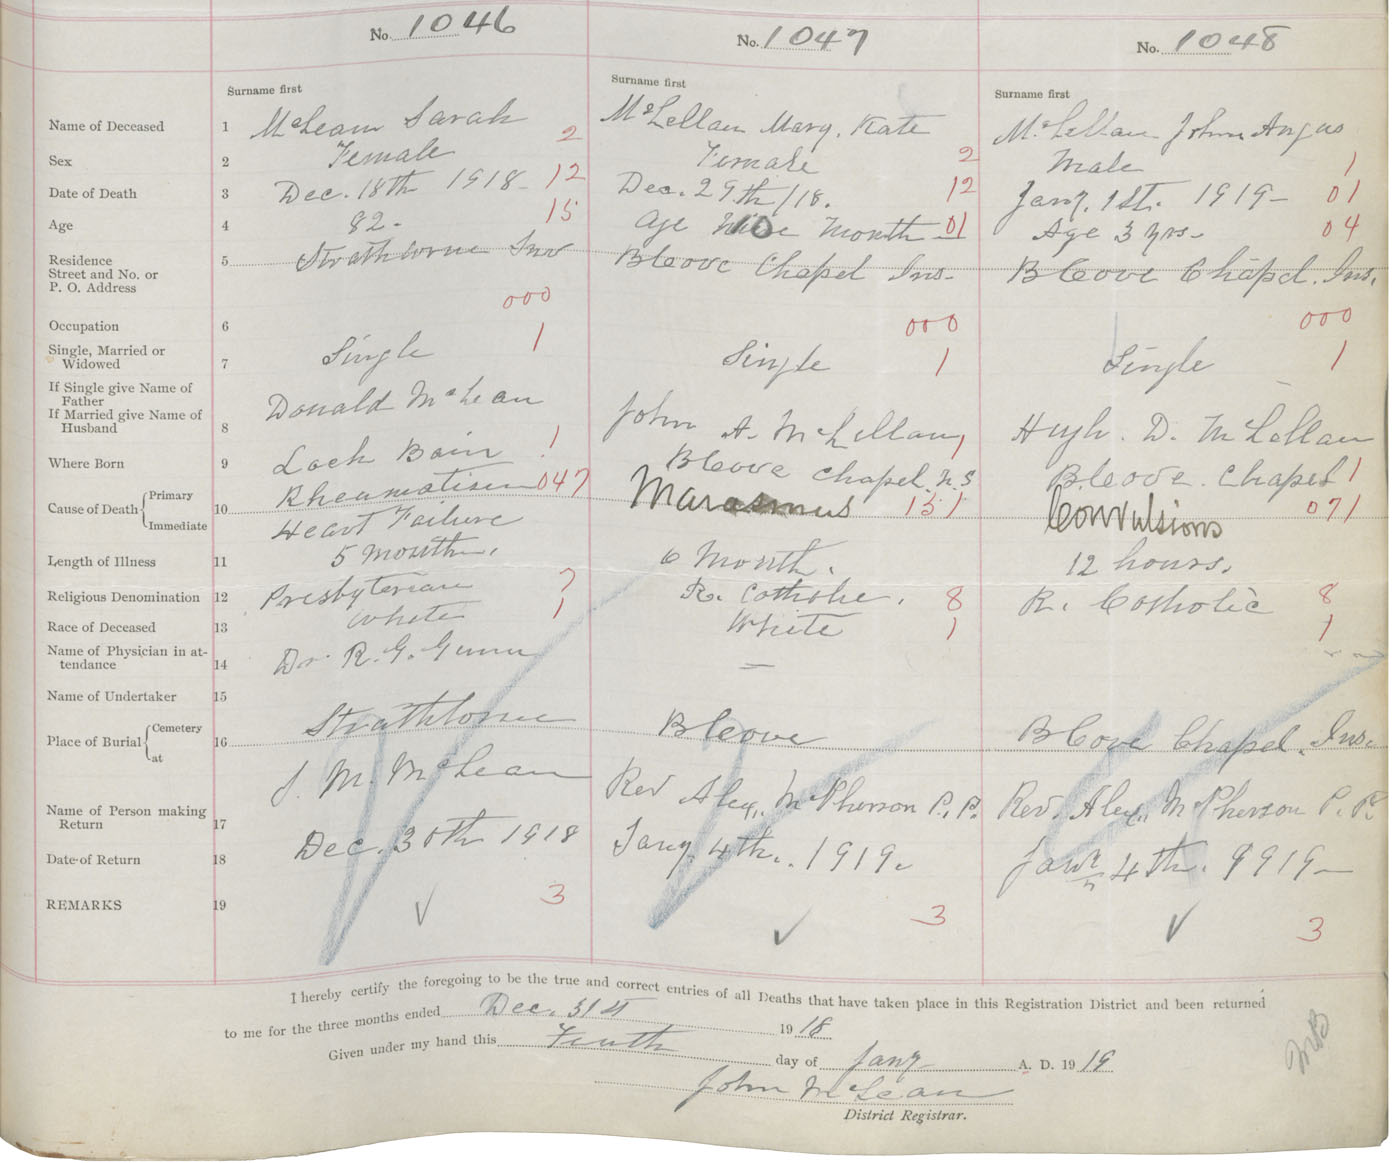 No. 1046
No. 1047
No. 1048
Surname first
Surname first
Surname first
Name of Deceased 1 McLean Sarah McLellan Mary. Kate McLellan John Angus
2
Sex 2 Female Female 2 Male 1
Date of Death 3 Dec. 18th 1918- 12 Dec. 29th/18. 12 Jany. 1st. 1919- 01
Age 4 82. 15 age 10 Month 01 Age 3 yrs- 04
Residence
Street and No. or
P. O. Address
5 Strathlorne Inv B Cove Chapel Ins- B Cove Chapel. Ins.
Occupation 6 000 000 000
Single, Married or
Widowed
7 Single 1 Single 1 Single 1
If Single give Name of
Father
If Married give Name of
Husband
8 Donald McLean John A. McLellan, Hugh. D. McLellan
Where Born 9 Loch Bain 1 B Cove Chapel N.S 1 B Cove. Chapel 1
Cause of Death { Primary Immediate 10 Rheumatism 047 Marasmus 151 Convulsions 071
Heart Failure
Length of Illness 11 5 months. 6 Month. 12 hours.
Religious Denomination 12 Presbyterian 7 R. Catholic. 8 R. Catholic 8
Race of Deceased 13 White 1 White 1 1
Name of Physician in at-
tendance
14 Dr. R. G. Gunn —
Name of Undertaker 15
Place of Burial { Cemetery at 16 Strathlorne B Cove B Cove Chapel. Ins.
Name of Person making
Return
17 J. M. McLean Rev Alex. McPherson P.P. Rev. Alex. McPherson P.P.
Date of Return 18 Dec. 30th 1918 Jany 4th. 1919. Jany 4th. 1919-
REMARKS 19 ✓ 3 ✓ 3 ✓ 3
I hereby certify the foregoing to be the true and correct entries of all Deaths that have taken place in this Registration District and been returned
to me for the three months ended Dec. 31st 19 18
Given under my hand this Tenth day of Jany A. D. 19 19
John McLean
District Registrar.